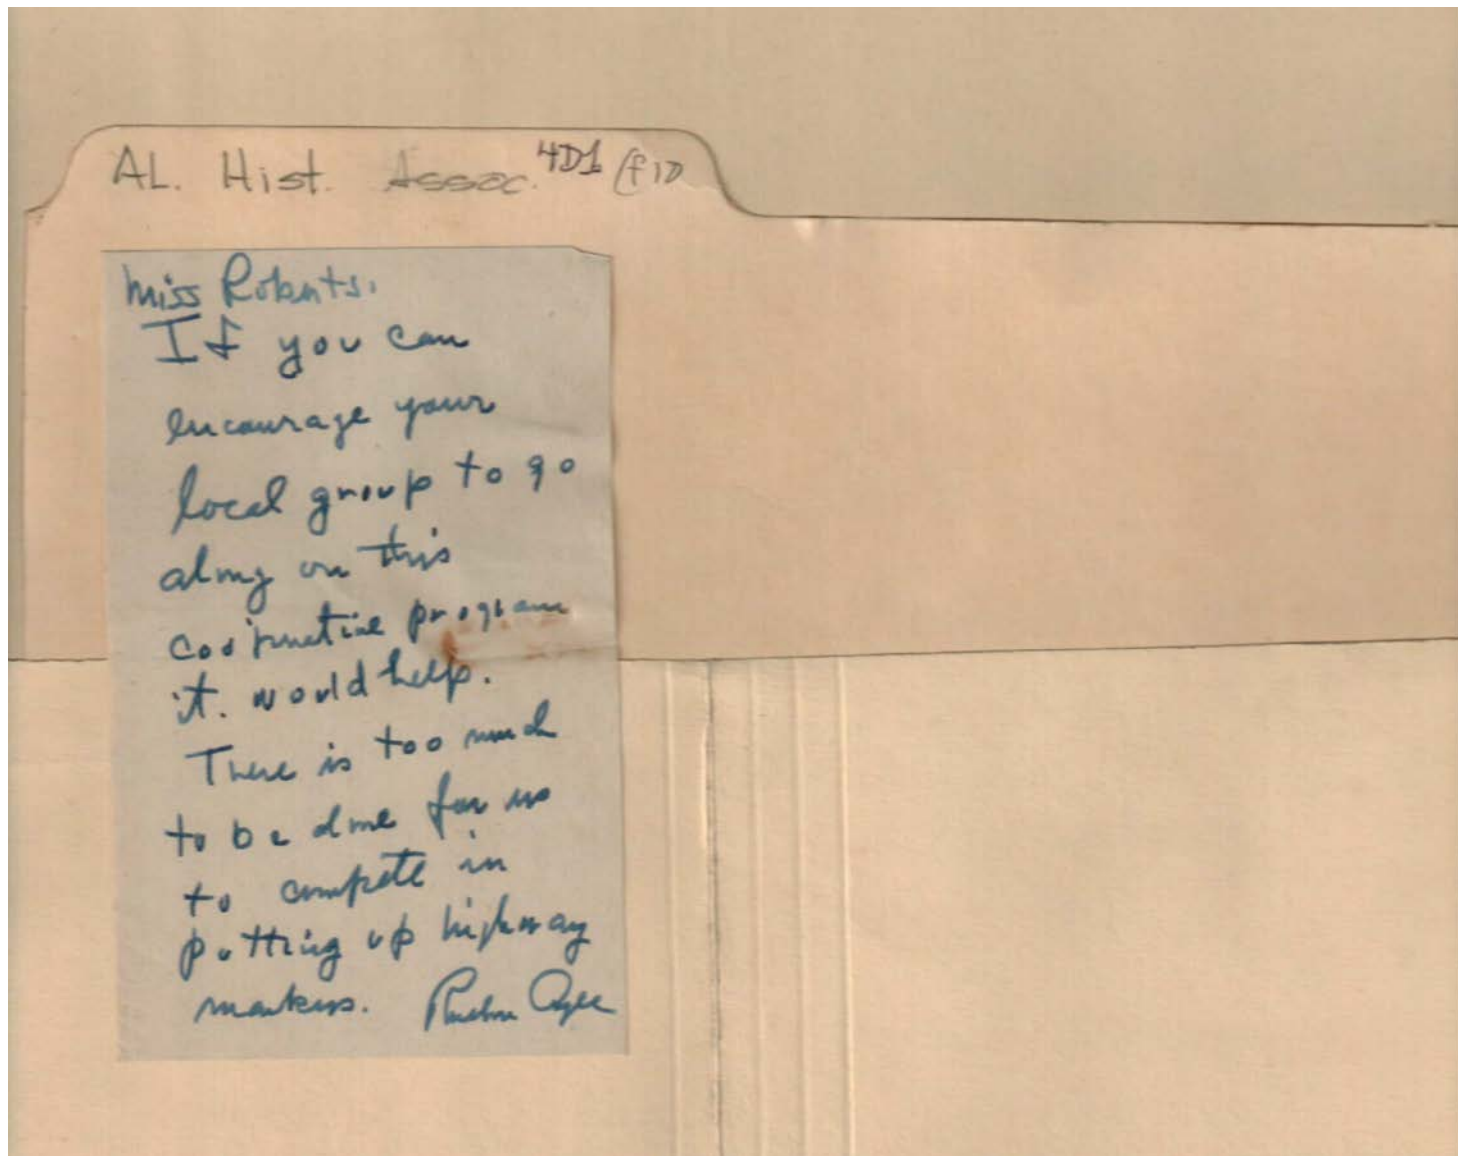 AL. Hist. Assoc. 4D1 (f10
Miss Roberts.
If you can
encourage your
local group to go
along on this
cooperative program
it. would help.
There is too much
to be done for us
to compete in
putting up highway
markers.